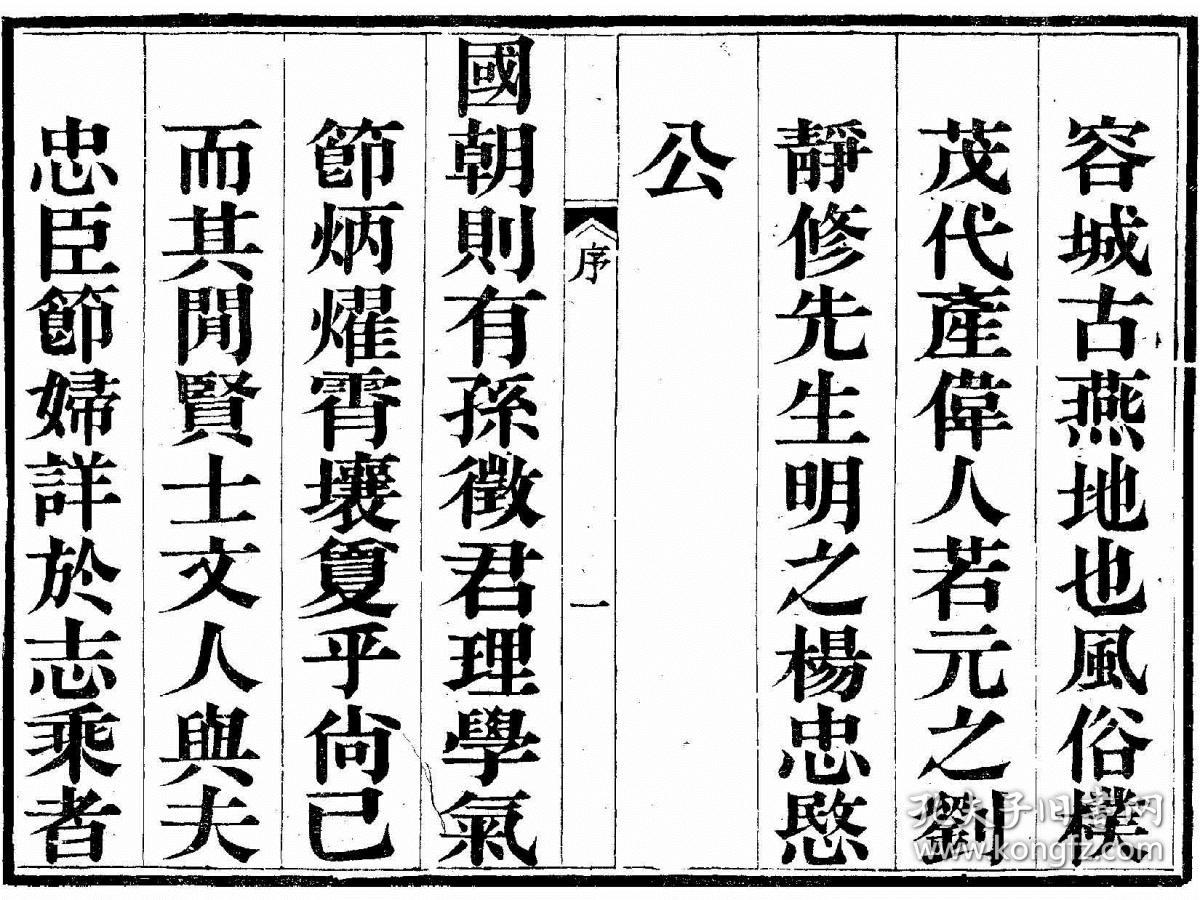 容城古燕地也風俗樸
茂代產偉人若元之劉
靜修先生明之楊忠愍
公
序
一
國朝則有孫徵君理學氣
節炳燿霄壤敻乎尙已
而其閒賢士文人與夫
忠臣節婦詳於志乘者
孔夫子旧书网
www.kongfz.com